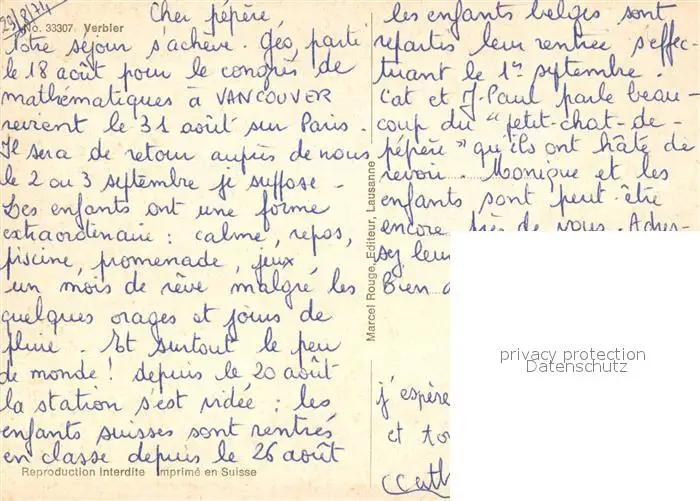 29/8/74
No. 33307 Verbier
Cher pépère
Notre séjour s'achève. Géo, partie
le 18 août pour le congrès de
mathématiques à VANCOUVER
revient le 31 août sur Paris.
Il sera de retour auprès de nous
le 2 ou 3 septembre je suppose.
Les enfants ont une forme
extraordinaire : calme, repos,
piscine, promenade, jeux,
un mois de rêve malgré les
quelques orages et jours de
pluie. Et surtout le peu
de monde ! depuis le 20 août
la station s'est vidée : les
enfants suisses sont rentrés
en classe depuis le 26 août
Reproduction Interdite Imprimé en Suisse
Marcel Rouge, Editeur, Lausanne
les enfants belges sont
repartis leur rentrée s'effec-
tuant le 1er septembre.
Cat et J. Paul parle beau-
coup du "petit-chat-de-
pépère" qu'ils ont hâte de
revoir. Monique et les
enfants sont peut-être
encore près de vous. Adres-
sez leur
Bien
j'espère
et
privacy protection
Datenschutz